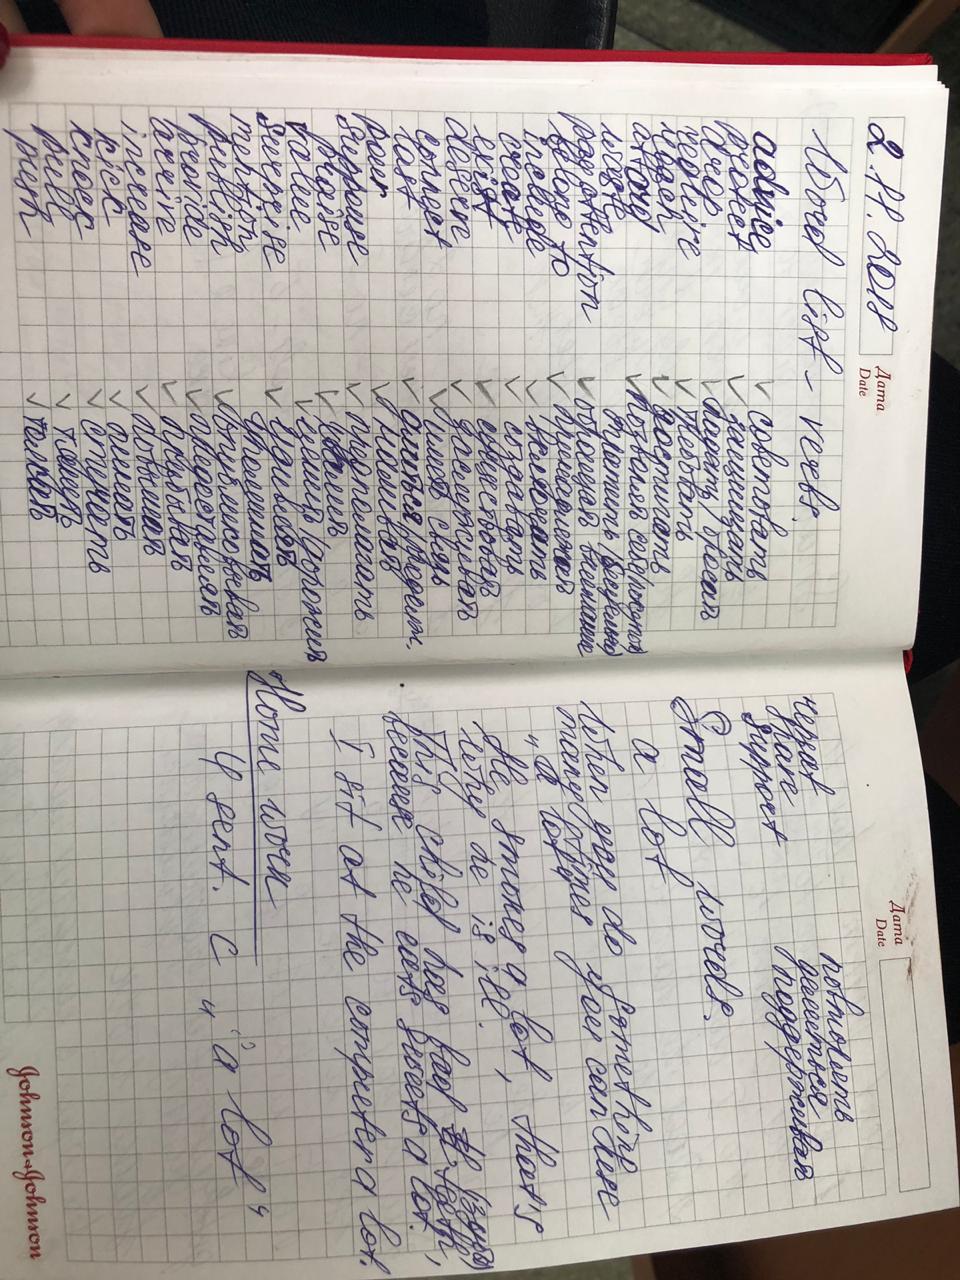 2.11.2018
Дата
Date
Word list – verbs.
advice советовать
protect защищать
drop падать/бросать
require требовать
reach достигать
afford позволять себе(покупок)
waste тратить (бесцельно)
pay attention обращать внимание
belong to принадлежать
include включать
create создавать
exist существовать
deserve заслуживать
connect иметь связь
last длиться/продолж.
pour наливать
suppouse предполагать
praise хвалить
value ценить/дорожить
surprise удивлять
mention упоминать
publish опубликовывать
provide предоставлять
arrive прибывать
increase повышать
kick пинать
knock стучать
pull тянуть
push толкать
Дата
Date
repeat повторять
share делиться
support поддерживать
Small words.
a lot
When you do something
many times you can use
„a lot"
He smokes a lot, that's
why he is ill.
(зубы)
This child has bad teeth,
because he eats sweets a lot.
I sit at the computer a lot.
Home work
4 sent. с „a lot"
Johnson+Johnson